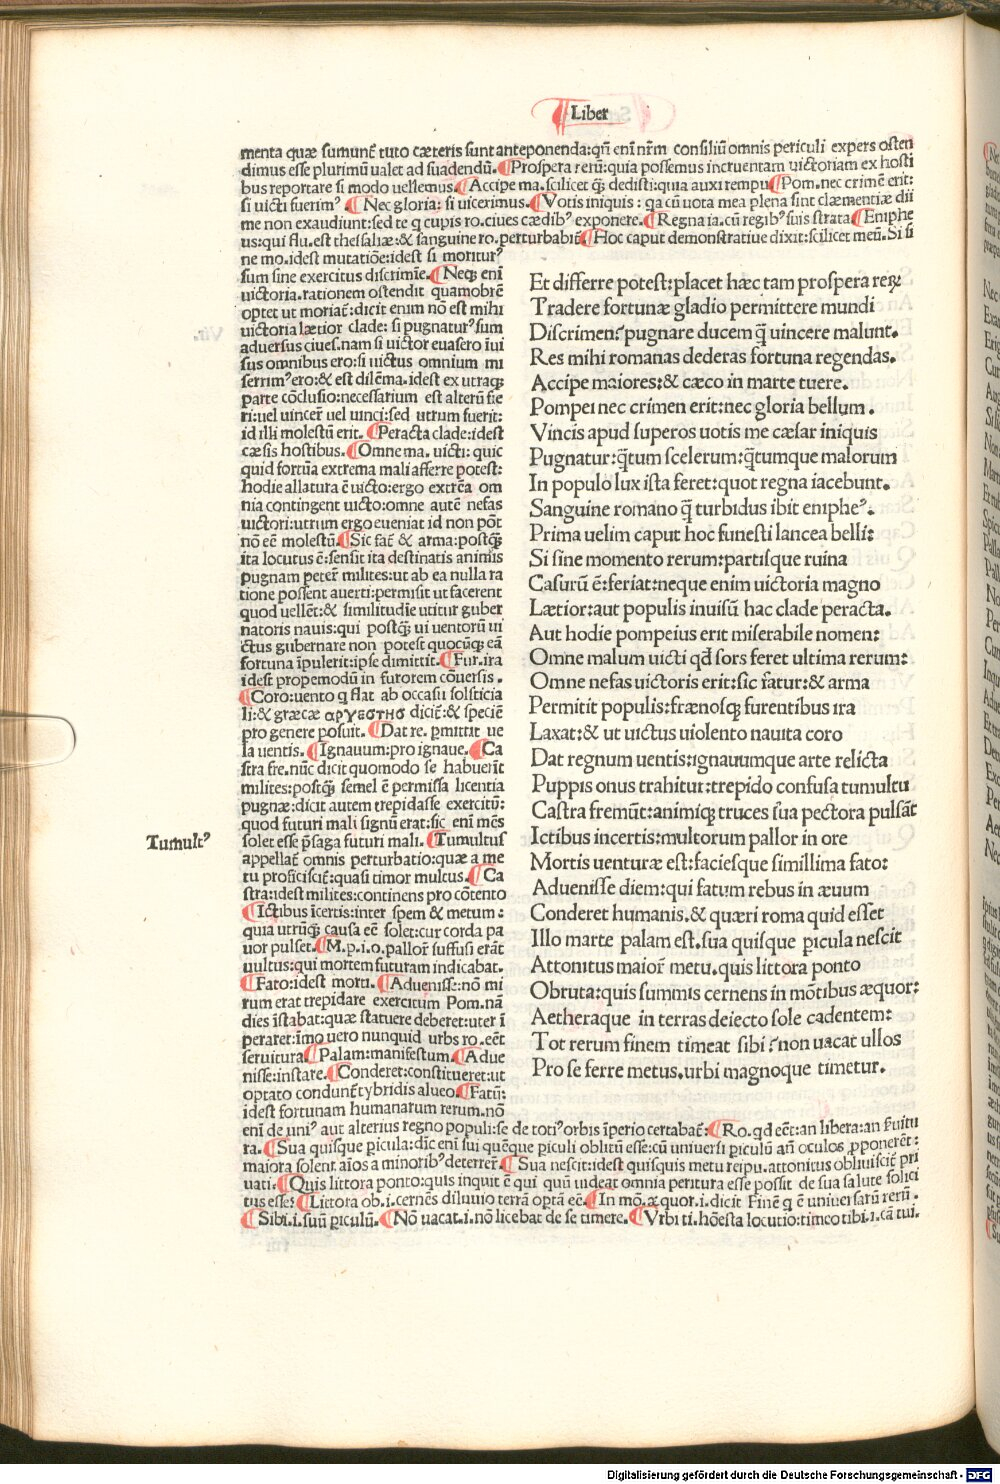 Liber
menta quæ sumunt̃ tuto cæteris sunt anteponenda:qñ eni nr̃m consiliũ omnis periculi expers osten
dimus esse plurimũ ualet ad suadendũ. ¶Prospera rerũ:quia possemus incruentam uictoriam ex hosti
bus reportare si modo uellemus. ¶Accipe ma.scilicet q̃ dedisti:quia auxi rempu ¶Pom.nec crimẽ erit:
si uicti fuerim⁹. ¶Nec gloria: si uicerimus. ¶Votis iniquis: qa cũ uota mea plena sint clæmentiæ dii
me non exaudiunt:sed te q cupis ro.ciues cædib⁹ exponere. ¶Regna ia.cũ regib⁹ suis strata ¶Eniphe
us:qui flu.est thessaliæ:& sanguine ro.perturbabit̃ ¶Hoc caput demonstratiue dixit:scilicet meũ. Si si
ne mo.idest mutatiõe:idest si moritur⁹
sum sine exercitus discrimĩe. ¶Neq; eni
uictoria.rationem ostendit quamobrẽ
optet ut moriat̃:dicit enim nõ est mihi
uictoria lætior clade: si pugnatur⁹ sum
aduersus ciues.nam si uictor euasero ĩui
sus omnibus ero:si uictus omnium mi
serrim⁹ ero:& est dilẽma.idest ex utraq;
parte cõclusio:necessarium est alterũ fie
ri:uel uincer̃ uel uinci:sed utrum fuerit:
id illi molestũ erit. ¶Peracta clade:idest
cæsis hostibus. ¶Omne ma. uicti: quic
quid fortũa extrema mali afferre potest:
hodie allatura ẽ uicto:ergo extrẽa om
nia contingent uicto:omne autẽ nefas
uictori:utrum ergo eueniat id non põt
nõ eẽ molestũ. ¶Sic fat̃ & arma:postq̃
ita locutus ẽ:sensit ita destinatis animis
pugnam peter̃ milites:ut ab ea nulla ra
tione possent auerti:permisit ut facerent
quod uellẽt:& similitudĩe utitur guber
natoris nauis:qui postq̃ ui uentorũ ui
ctus gubernare non potest quocũq; eã
fortuna ĩpulerit:ipse dimittit. ¶Fur.ira
idest propemodũ in furorem cõuersis.
¶Coro:uento q flat ab occasu solsticia
li:& græcæ αργεστησ dicit̃:& speciẽ
pro genere posuit. ¶Dat re. pmittit ue
la uentis. ¶Ignauum:pro ignaue. ¶Ca
stra fre.nũc dicit quomodo se habuerĩt
milites:postq̃ semel ẽ permissa licentia
pugnæ:dicit autem trepidasse exercitũ:
quod futuri mali signũ erat:sic eni mẽs
solet esse p̃saga futuri mali. ¶Tumultus
appellat̃ omnis perturbatio:quæ a me
tu proficiscit̃:quasi timor multus. ¶Ca
stra:idest milites:continens pro cõtento
¶Ictibus ĩcertis:inter spem & metum:
quia utrũq; causa eẽ solet:cur corda pa
uor pulset. ¶M.p.i.o.pallor̃ suffusi erãt
uultus:qui mortem futuram indicabat.
¶Fato:idest morti. ¶Aduenisse:nõ mi
rum erat trepidare exercitum Pom.nã
dies ĩstabat:quæ statuere deberet:uter ĩ
peraret:imo uero nunquid urbs ro.eẽt
seruitura. ¶Palam:manifestum. ¶Adue
nisse:instare. ¶Conderet:constitueret:ut
optato condunt̃ tybridis alueo. ¶Fatũ:
idest fortunam humanarum rerum.nõ
eni de uni⁹ aut alterius regno populi:se de toti⁹ orbis ĩperio certabat̃: ¶Ro.qd eẽt:an libera:an fuitu
ra. ¶Sua quisque picula:dic̃ eni sui quẽque piculi oblitũ esse:cũ uniuersi piculũ añ oculos pponeret̃:
maiora solent aĩos a minorib⁹ deterrer̃ ¶Sua nescit:idest quisquis metu reipu.attonitus obliuiscit̃ pri
uati. ¶Quis littora ponto:quis inquit ẽ qui quũ uideat omnia peritura esse possit de sua salute solici
tus esse? ¶Littora ob.i.cernẽs diluuio terrã optã eẽ. ¶In mõ.æquor.i.dicit Finẽ q ẽ uniuersarũ rerũ.
¶Sibi.i.suũ piculũ. ¶Nõ uacat.i.nõ licebat de se timere. ¶Vrbi ti.hõesta locutio:timeo tibi.i.cã tui.
Tumult⁹
Et differre potest:placet hæc tam prospera rerꝝ
Tradere fortunæ gladio permittere mundi
Discrimen:̃pugnare ducem q̃ uincere malunt.
Res mihi romanas dederas fortuna regendas.
Accipe maiores:& cæco in marte tuere.
Pompei nec crimen erit:nec gloria bellum.
Vincis apud superos uotis me cæsar iniquis
Pugnatur:q̃tum scelerum:q̃tumque malorum
In populo lux ista feret:quot regna iacebunt.
Sanguine romano q̃ turbidus ibit eniphe⁹.
Prima uelim caput hoc funesti lancea belli:
Si sine momento rerum:partisque ruina
Casurũ ẽ:feriat:neque enim uictoria magno
Lætior:aut populis inuisũ hac clade peracta.
Aut hodie pompeius erit miserabile nomen:
Omne malum uicti qd̃ sors feret ultima rerum:
Omne nefas uictoris erit:sic fatur:& arma
Permitit populis:frænosq; furentibus ira
Laxat:& ut uictus uiolento nauita coro
Dat regnum uentis:ignauumque arte relicta
Puppis onus trahitur:trepido confusa tumultu
Castra fremũt:animiq; truces sua pectora pulsãt
Ictibus incertis:multorum pallor in ore
Mortis uenturæ est:faciesque simillima fato:
Aduenisse diem:qui fatum rebus in æuum
Conderet humanis,& quæri roma quid esset
Illo marte palam est.sua quisque picula nescit
Attonitus maior̃ metu.quis littora ponto
Obruta:quis summis cernens in mõtibus æquor:
Aetheraque in terras deiecto sole cadentem:
Tot rerum finem timeat sibi:̃non uacat ullos
Pro se ferre metus.urbi magnoque timetur.
Digitalisierung gefördert durch die Deutsche Forschungsgemeinschaft - DFG